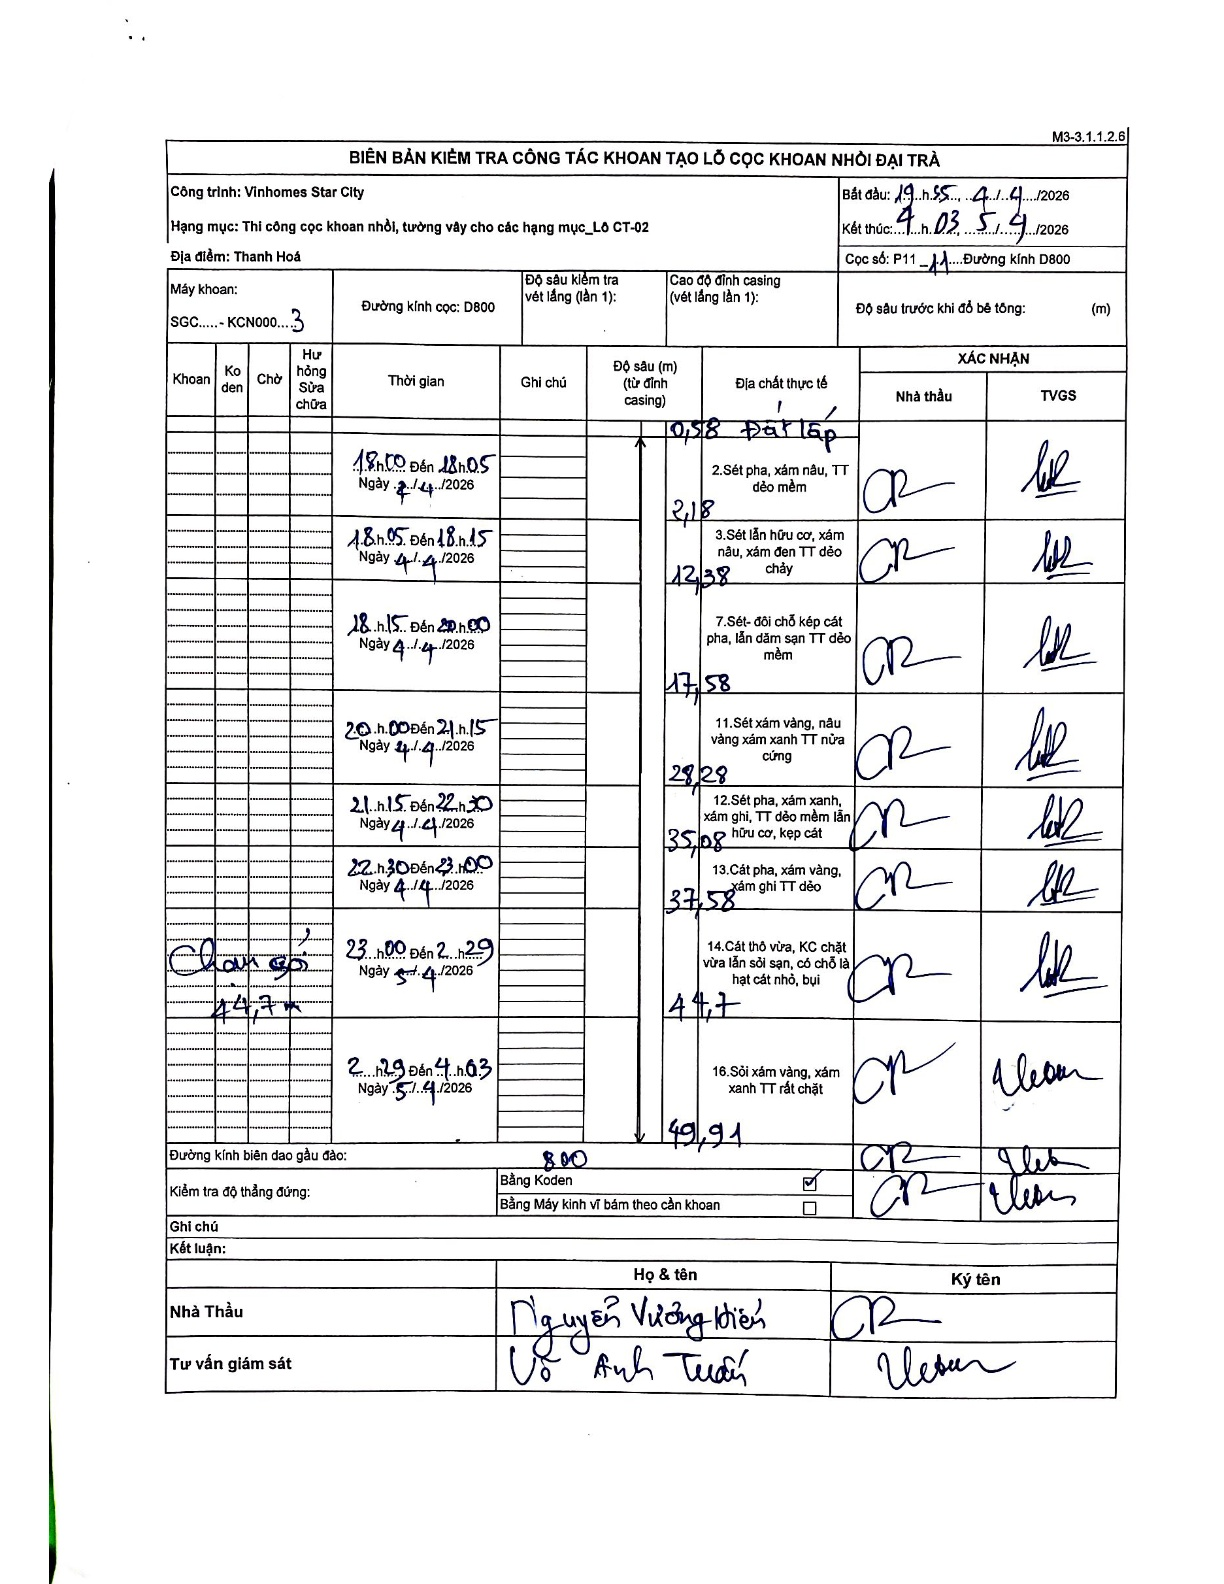 M3-3.1.1.2.6
BIÊN BẢN KIỂM TRA CÔNG TÁC KHOAN TẠO LỖ CỌC KHOAN NHỒI ĐẠI TRÀ
Công trình: Vinhomes Star City
Bắt đầu: 19..h.55.., ..4../..4..../2026
Hạng mục: Thi công cọc khoan nhồi, tường vây cho các hạng mục_Lô CT-02
Kết thúc:..4...h.03., ..5../..4.../2026
Địa điểm: Thanh Hoá
Cọc số: P11 _11....Đường kính D800
Máy khoan:
SGC.....- KCN000....3
Đường kính cọc: D800
Độ sâu kiểm tra
vét lắng (lần 1):
Cao độ đỉnh casing
(vét lắng lần 1):
Độ sâu trước khi đổ bê tông: (m)
Khoan
Ko
den
Chờ
Hư
hỏng
Sửa
chữa
Thời gian
Ghi chú
Độ sâu (m)
(từ đỉnh
casing)
Địa chất thực tế
XÁC NHẬN
Nhà thầu
TVGS
0,58 Đất lấp
18h00 Đến 18h05
Ngày ../4../2026
2.Sét pha, xám nâu, TT
dẻo mềm
2,18
18.h.05. Đến 18.h.15
Ngày 4../.4./2026
3.Sét lẫn hữu cơ, xám
nâu, xám đen TT dẻo
chảy
12,38
18.h.15.. Đến 20.h.00
Ngày 4../.4./2026
7.Sét- đôi chỗ kép cát
pha, lẫn dăm sạn TT dẻo
mềm
17,58
20.h.00 Đến 21.h.15
Ngày 4./.4../2026
11.Sét xám vàng, nâu
vàng xám xanh TT nửa
cứng
28,28
21..h.15. Đến 22..h.30
Ngày 4../..4./2026
12.Sét pha, xám xanh,
xám ghi, TT dẻo mềm lẫn
hữu cơ, kẹp cát
35,08
22..h.30 Đến 23.h00
Ngày 4./4.../2026
13.Cát pha, xám vàng,
xám ghi TT dẻo
37,58
44,7m
23...h00 Đến 2...h29
Ngày 5./..4./2026
14.Cát thô vừa, KC chặt
vừa lẫn sỏi sạn, có chỗ là
hạt cát nhỏ, bụi
44,7
2....h29 Đến 4.h.03
Ngày .5./..4./2026
16.Sỏi xám vàng, xám
xanh TT rất chặt
49,91
Đường kính biên dao gầu đào: 800
Kiểm tra độ thẳng đứng:
Bằng Koden
Bằng Máy kinh vĩ bám theo cần khoan
Ghi chú
Kết luận:
Họ & tên
Ký tên
Nhà Thầu
Nguyễn Vương Hiến
Tư vấn giám sát
Võ Anh Tuấn